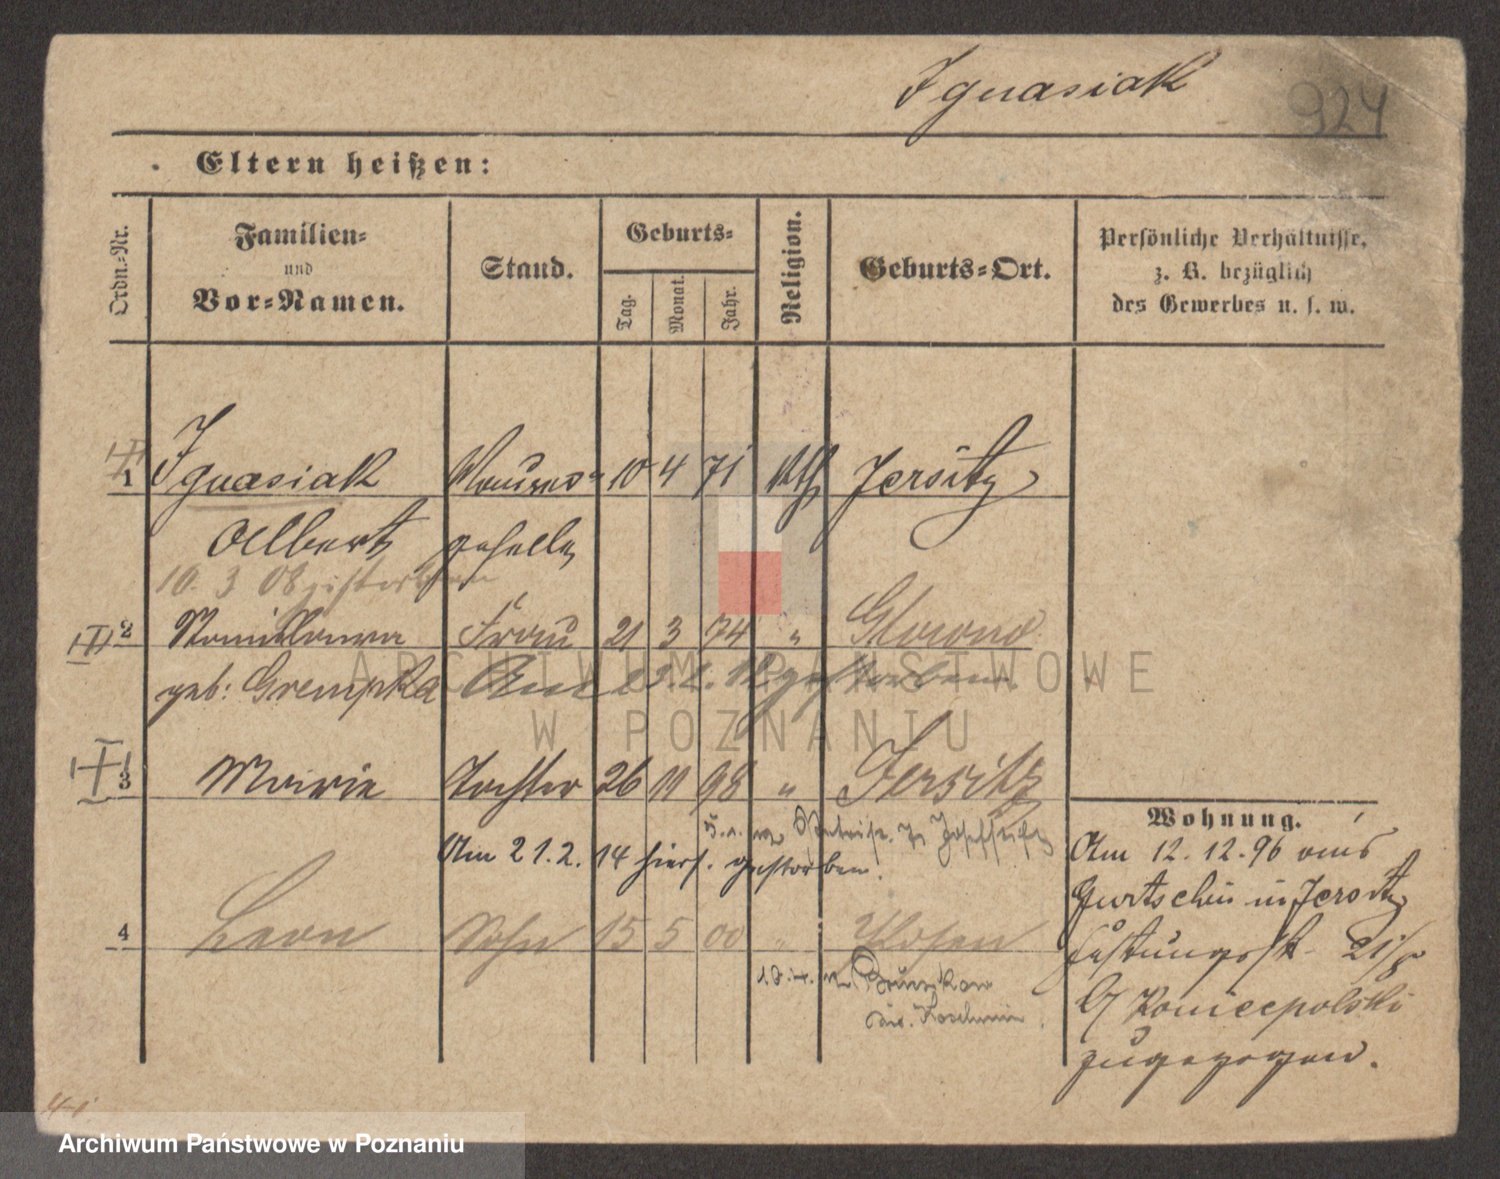 Ignasiak
924
Eltern heißen:
Ordn.-Nr.
Familien-
und
Vor-Namen.
Stand.
Geburts-
Tag.
Monat.
Jahr.
Religion.
Geburts-Ort.
Persönliche Verhältnisse,
z. B. bezüglich
des Gewerbes u. s. w.
1 Ignasiak Maurer- 10 4 71 kth Jersitz
Albert geselle
10. 3 08 gestorben
2 Stanislawa Frau 21 3 74 "
geb: Grempka Am gestorben.
3 Marie Tochter 26 11 98 " Jersitz
Am 21.2. 14 hiers. gestorben.
4 Leon Sohn 15 5 00 " Posen
Koschmin
Wohnung.
Am 12.12.96 aus
Gurtschin in Jersitz
21/8
b/ Koniecpolski
zugezogen.
ARCHIWUM PAŃSTWOWE
W POZNANIU
Archiwum Państwowe w Poznaniu